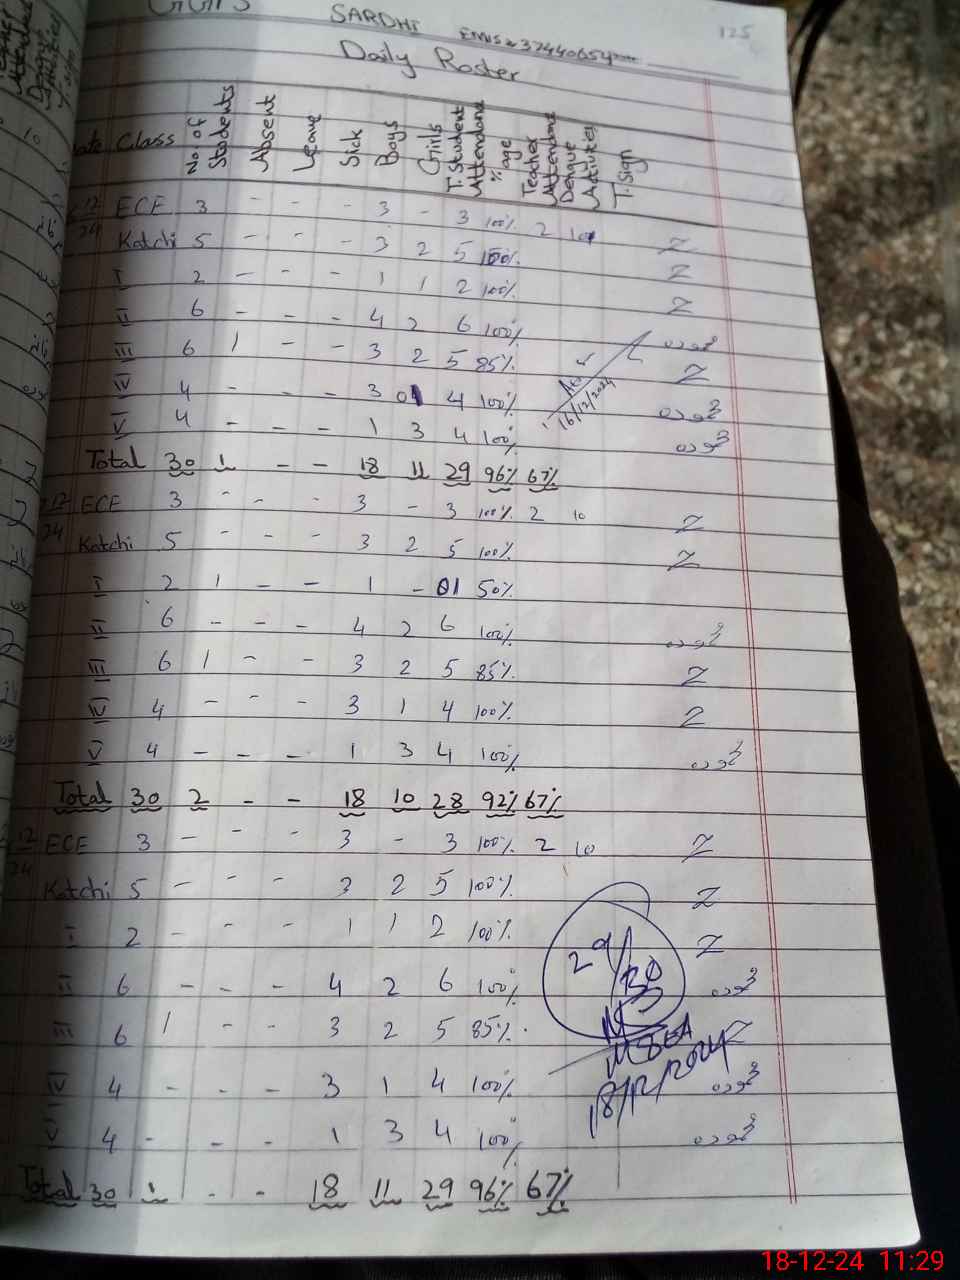 GGPS SARDHI EMIS 37440654
125
Daily Roster
Date Class No. of Students Absent Leave Sick Boys Girls T. Student Attendance %age Teacher Attendance Dengue Activities T. Sign
12/24 ECE 3 - - - 3 - 3 100% 2 10
Katchi 5 - - - 3 2 5 100%
I 2 - - - 1 1 2 100%
II 6 - - - 4 2 6 100%
III 6 1 - - 3 2 5 85%
IV 4 - - - 3 01 4 100%
16/12/2024
V 4 - - - 1 3 4 100%
Total 30 1 - - 18 11 29 96% 67%
12/24 ECE 3 - - - 3 - 3 100% 2 10
Katchi 5 - - - 3 2 5 100%
I 2 1 - - 1 - 01 50%
II 6 - - - 4 2 6 100%
III 6 1 - - 3 2 5 85%
IV 4 - - - 3 1 4 100%
V 4 - - - 1 3 4 100%
Total 30 2 - - 18 10 28 92% 67%
12/24 ECE 3 - - - 3 - 3 100% 2 10
Katchi 5 - - - 3 2 5 100%
I 2 - - - 1 1 2 100%
29/30
II 6 - - - 4 2 6 100%
III 6 1 - - 3 2 5 85%
MEA
IV 4 - - - 3 1 4 100%
18/12/2024
V 4 - - - 1 3 4 100%
Total 30 1 - - 18 11 29 96% 67%
18-12-24 11:29